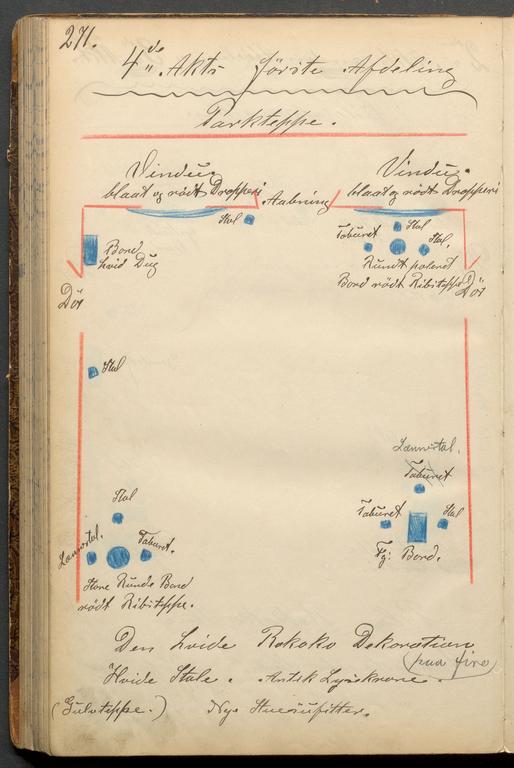 271.
4de Akts Förste Afdeling
Parkteppe.
Vindue
blaat og rödt Drapperi
Aabning
Vindue
blaat og rödt Drapperi
Stol
Taburet
Stol
Stol.
Bord
hvid Dug
Rundt poleret
Bord rödt Ribsteppe
Dör
Dör
Stol
Lænestol.
Taburet
Stol
Taburet
Stol
Lænestol.
Taburet.
Fg: Bord.
Store Runde Bord
rödt Ribsteppe.
Den hvide Rokoko Dekoration
paa fire
Hvide Stole. Antik Lysekrone.
(Gulvteppe.) Nye Stuesufitter.